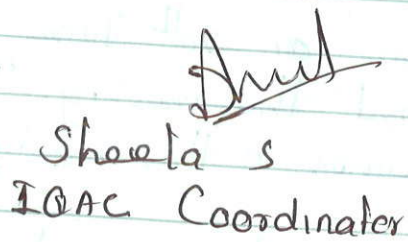 Sheela S
IQAC Coordinater